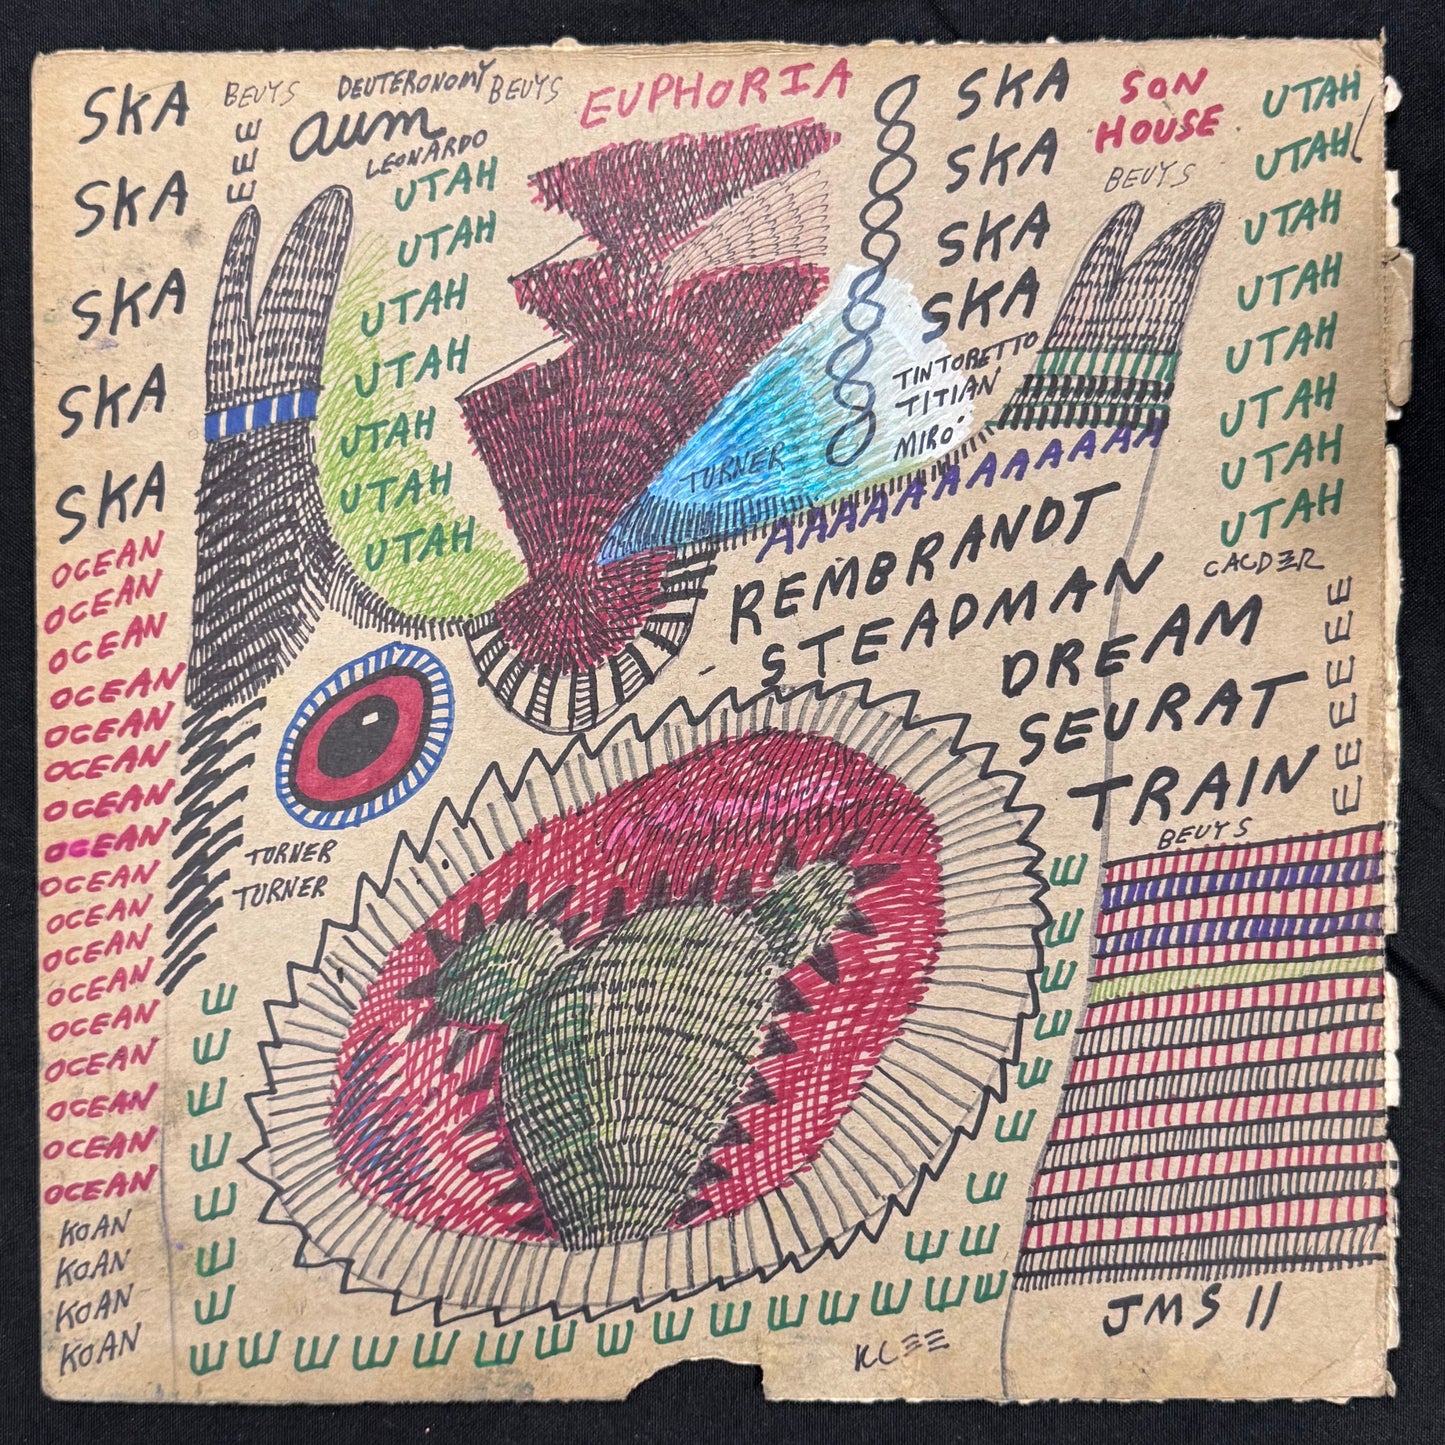 SKA
SKA
SKA
SKA
SKA
BEUYS
DEUTERONOMY
BEUYS
EEE
aum
LEONARDO
EUPHORIA
UTAH
UTAH
UTAH
UTAH
UTAH
UTAH
UTAH
SKA
SKA
SKA
SKA
SON
HOUSE
BEUYS
UTAH
UTAH
UTAH
UTAH
UTAH
UTAH
UTAH
UTAH
TINTORETTO
TITIAN
MIRO
TURNER
AAAAAAAAAAAA
REMBRANDT
STEADMAN
DREAM
SEURAT
TRAIN
CALDER
EEEEEE
BEUYS
OCEAN
OCEAN
OCEAN
OCEAN
OCEAN
OCEAN
OCEAN
OCEAN
OCEAN
OCEAN
OCEAN
OCEAN
OCEAN
OCEAN
OCEAN
OCEAN
OCEAN
KOAN
KOAN
KOAN
KOAN
TURNER
TURNER
E
E
E
E
E
E
E
E
E
E
E
E
E
E
E E
E E E E E E E E E E E E E E E
JMS 11
KLEE